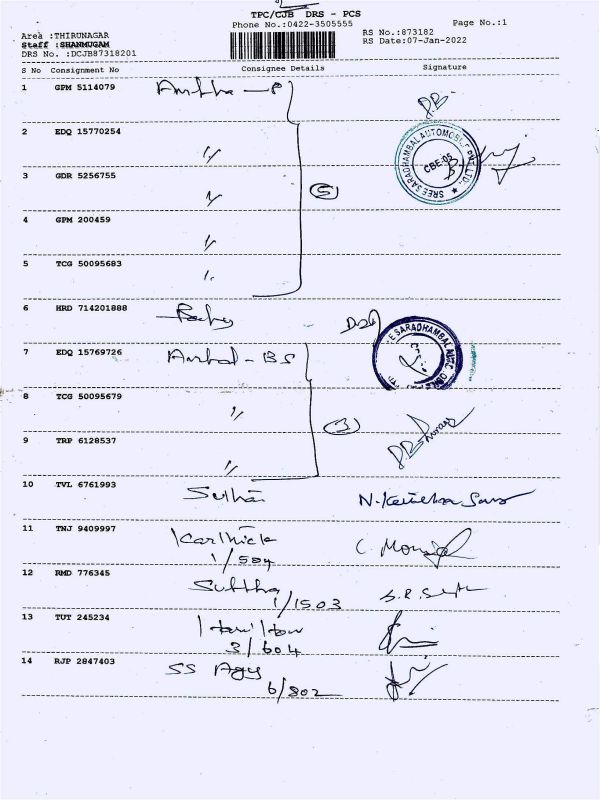 TPC/CJB DRS - PCS
Phone No.:0422-3505555
Page No.:1
Area :THIRUNAGAR
RS No.:873182
Staff :SHANMUGAM
RS Date:07-Jan-2022
DRS No. :DCJB87318201
S No Consignment No Consignee Details Signature
1 GPM 5114079
2 EDQ 15770254 〃
SREE SARADHAMBAL AUTOMOBILE PVT LTD.
CBE-05
3 GDR 5256755 〃 (5)
4 GPM 200459 〃
5 TCG 50095683 〃
6 HRD 714201888
7 EDQ 15769726
8 TCG 50095679 〃 (3)
9 TRP 6128537 〃
10 TVL 6761993
11 TNJ 9409997 Karthick
1/504
12 RMD 776345
1/1503
13 TUT 245234 Hamilton
3/604
14 RJP 2847403
6/802